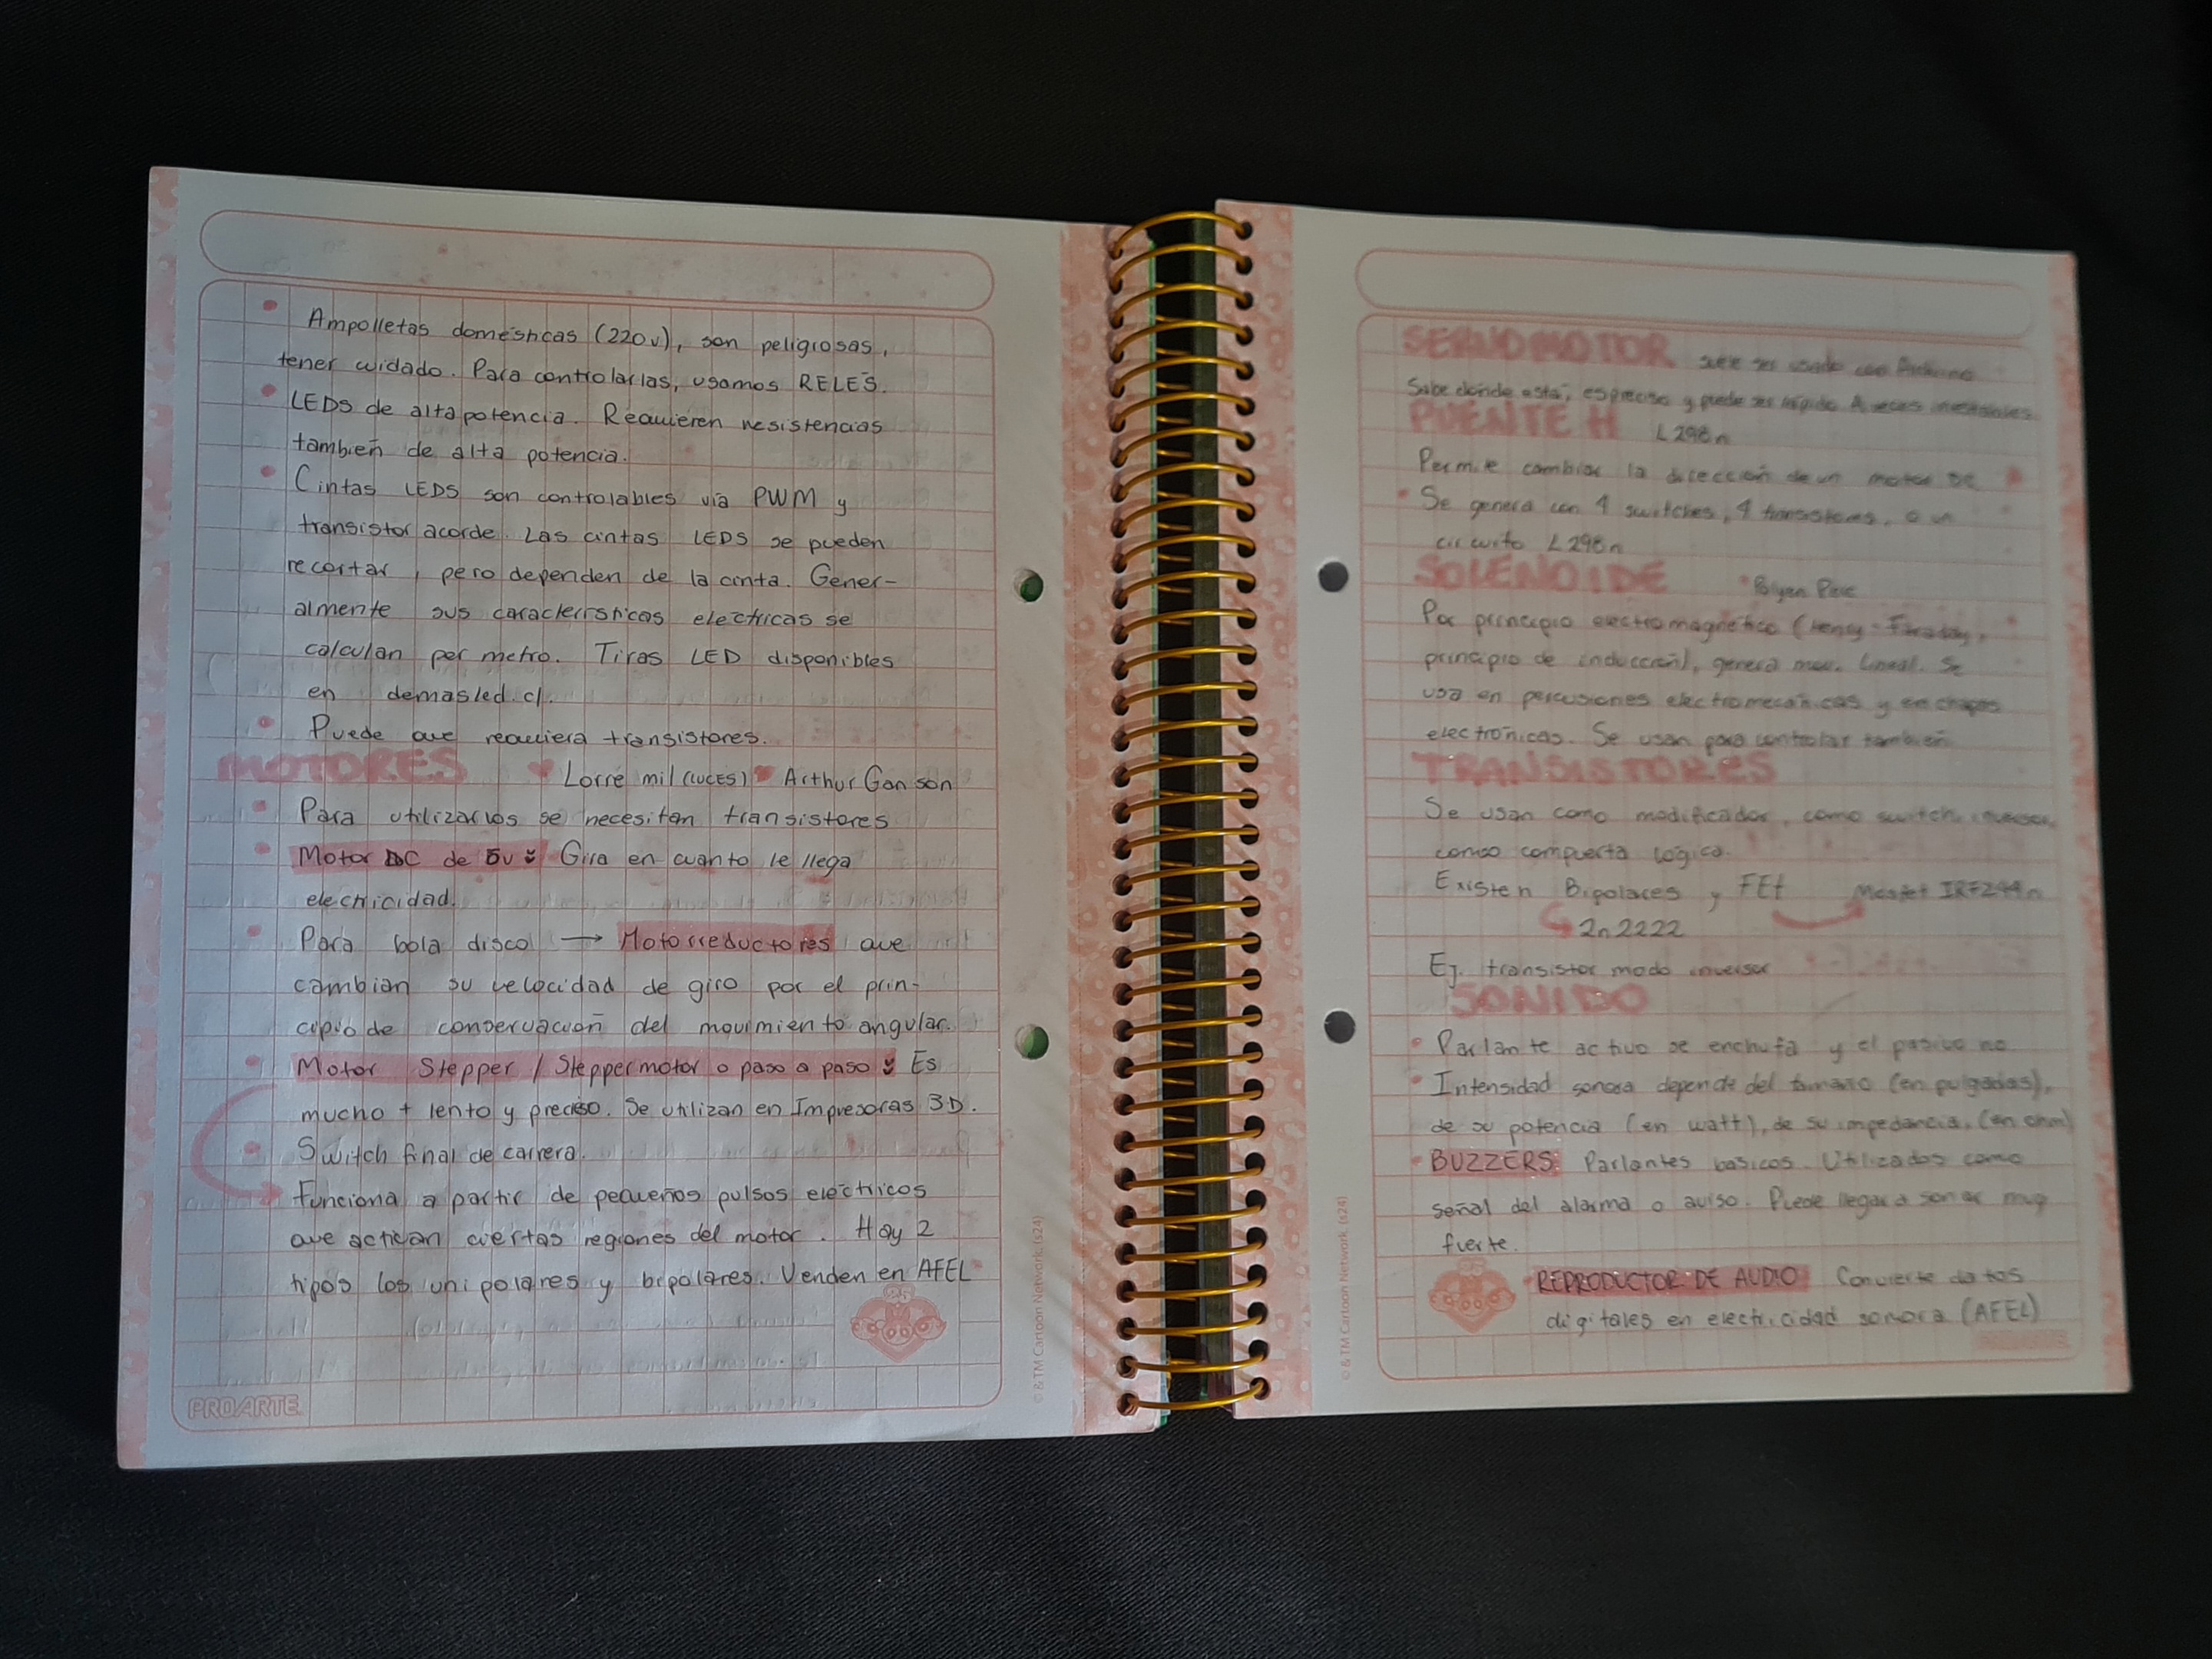 • Ampolletas domésticas (220v), son peligrosas,
tener cuidado. Para controlarlas, usamos RELÉS.
• LEDS de alta potencia. Requieren resistencias
también de alta potencia.
• Cintas LEDS son controlables vía PWM y
transistor acorde. Las cintas LEDS se pueden
recortar, pero dependen de la cinta. Gener-
almente sus características electricas se
calculan per metro. Tiras LED disponibles
en demasled.cl.
• Puede que requiera transistores.
MOTORES ♥ Lorré mil (LUCES) ♥ Arthur Ganson
• Para utilizarlos se necesitan transistores
• Motor DC de 5v: Gira en cuanto le llega
electricidad.
• Para bola disco → Motorreductores que
cambian su velocidad de giro por el prin-
cipio de conservación del movimiento angular.
• Motor Stepper / Stepper motor o paso a paso: Es
mucho + lento y preciso. Se utilizan en Impresoras 3D.
• Switch final de carrera.
Funciona a partir de pequeños pulsos eléctricos
que activan ciertas regiones del motor. Hay 2
tipos los unipolares y bipolares. Venden en AFEL
PROARTE
© & TM Cartoon Network. (s24)
SERVOMOTOR suele ser usado con Arduino
Sabe dónde está, es preciso y puede ser rápido. A veces
PUENTE H L298n
Permite cambiar la dirección de un motor DC
• Se genera con 4 switches, 4 transistores, o un
circuito L298n
SOLENOIDE
Por principio electromagnético (Henry - Faraday,
principio de inducción), genera mov. lineal. Se
usa en percusiones electromecánicas y en chapas
electrónicas. Se usan para controlar también
TRANSISTORES
Se usan como modificador, como switch, inversor,
como compuerta lógica.
Existen Bipolares y FEt Mosfet IRFZ44n
2n2222
Ej. transistor modo inversor
SONIDO
• Parlante activo se enchufa y el pasivo no
• Intensidad sonora depende del tamaño (en pulgadas),
de su potencia (en watt), de su impedancia, (en ohm)
• BUZZERS: Parlantes basicos. Utilizados como
señal del alarma o aviso. Puede llegar a sonar muy
fuerte.
• REPRODUCTOR DE AUDIO Convierte datos
digitales en electricidad sonora (AFEL)
© & TM Cartoon Network. (s24)